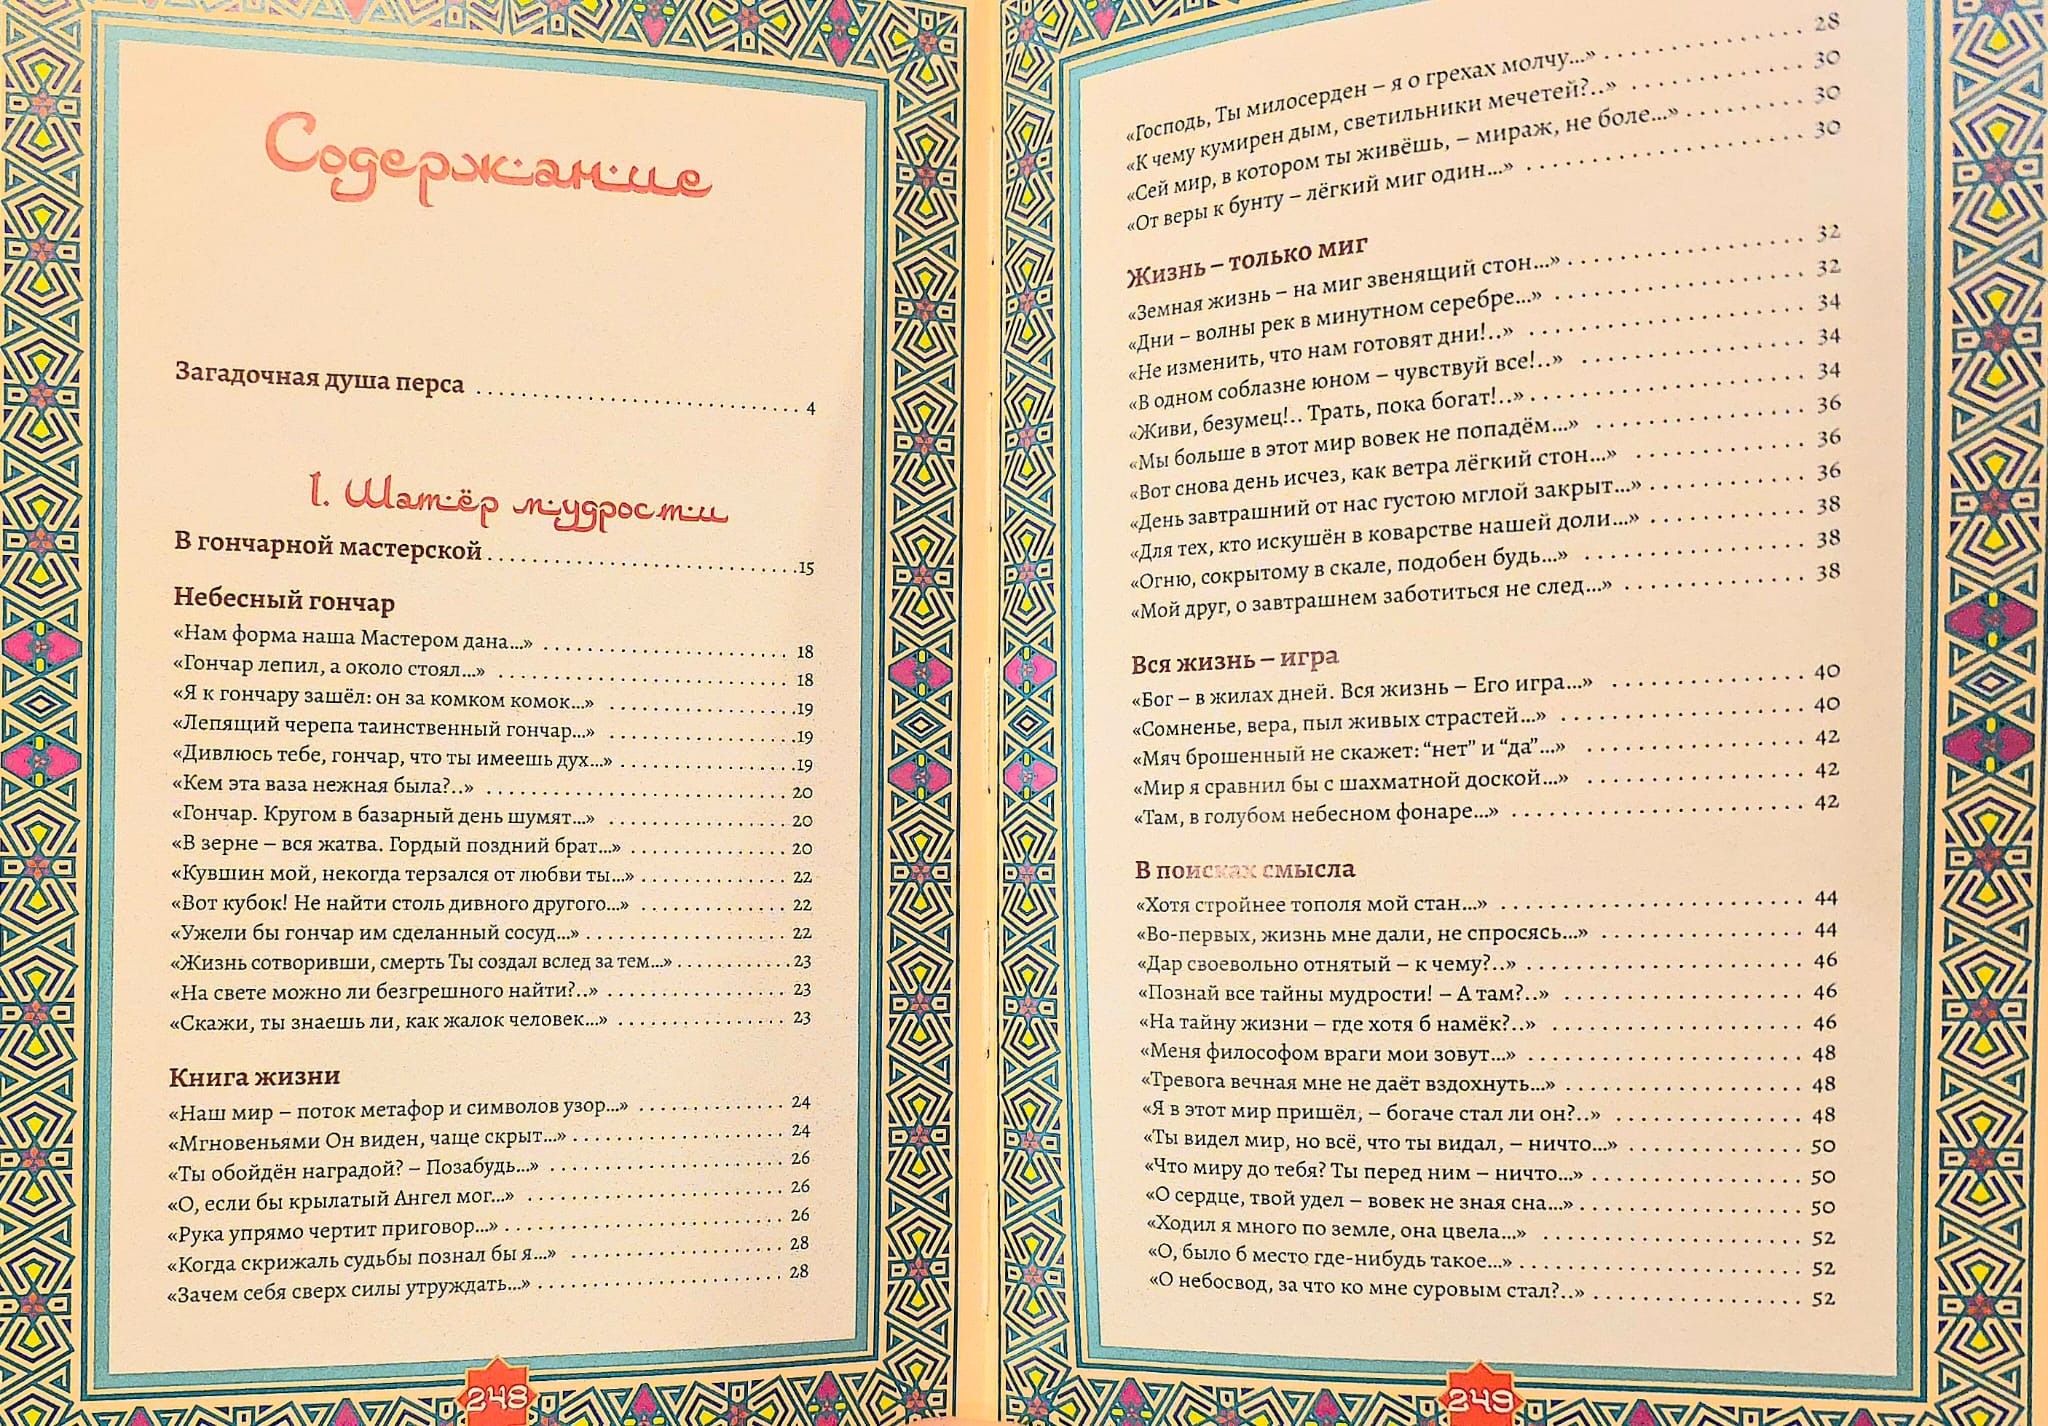 Содержание
Загадочная душа перса . . . . . . . . . . . . . . . . . . . . . . . . . . . . . . 4
I. Шатёр мудрости
В гончарной мастерской . . . . . . . . . . . . . . . . . . . . . . . . . . . . . 15
Небесный гончар
«Нам форма наша Мастером дана...» . . . . . . . . . . . . . . . . . . . . . . 18
«Гончар лепил, а около стоял...» . . . . . . . . . . . . . . . . . . . . . . . . . 18
«Я к гончару зашёл: он за комком комок...» . . . . . . . . . . . . . . . . . 19
«Лепящий черепа таинственный гончар...» . . . . . . . . . . . . . . . . . 19
«Дивлюсь тебе, гончар, что ты имеешь дух...» . . . . . . . . . . . . . . . 19
«Кем эта ваза нежная была?..» . . . . . . . . . . . . . . . . . . . . . . . . . . 20
«Гончар. Кругом в базарный день шумят...» . . . . . . . . . . . . . . . . 20
«В зерне – вся жатва. Гордый поздний брат...» . . . . . . . . . . . . . . 20
«Кувшин мой, некогда терзался от любви ты...» . . . . . . . . . . . . . 22
«Вот кубок! Не найти столь дивного другого...» . . . . . . . . . . . . . 22
«Ужели бы гончар им сделанный сосуд...» . . . . . . . . . . . . . . . . . 22
«Жизнь сотворивши, смерть Ты создал вслед за тем...» . . . . . . . . . . 23
«На свете можно ли безгрешного найти?..» . . . . . . . . . . . . . . . . 23
«Скажи, ты знаешь ли, как жалок человек...» . . . . . . . . . . . . . . . 23
Книга жизни
«Наш мир – поток метафор и символов узор...» . . . . . . . . . . . . . 24
«Мгновеньями Он виден, чаще скрыт...» . . . . . . . . . . . . . . . . . . 24
«Ты обойдён наградой? – Позабудь...» . . . . . . . . . . . . . . . . . . . . 26
«О, если бы крылатый Ангел мог...» . . . . . . . . . . . . . . . . . . . . . . 26
«Рука упрямо чертит приговор...» . . . . . . . . . . . . . . . . . . . . . . . . 26
«Когда скрижаль судьбы познал бы я...» . . . . . . . . . . . . . . . . . . . 28
«Зачем себя сверх силы утруждать...» . . . . . . . . . . . . . . . . . . . . . 28
248
«Господь, Ты милосерден – я о грехах молчу...» . . . . . . . . . . . . . . . 28
«К чему кумирен дым, светильники мечетей?..» . . . . . . . . . . . . . . 30
«Сей мир, в котором ты живёшь, – мираж, не боле...» . . . . . . . . . . 30
«От веры к бунту – лёгкий миг один...» . . . . . . . . . . . . . . . . . . . . 30
Жизнь – только миг
«Земная жизнь – на миг звенящий стон...» . . . . . . . . . . . . . . . . . . 32
«Дни – волны рек в минутном серебре...» . . . . . . . . . . . . . . . . . . 32
«Не изменить, что нам готовят дни!..» . . . . . . . . . . . . . . . . . . . . 34
«В одном соблазне юном – чувствуй все!..» . . . . . . . . . . . . . . . . . 34
«Живи, безумец!.. Трать, пока богат!..» . . . . . . . . . . . . . . . . . . . . 34
«Мы больше в этот мир вовек не попадём...» . . . . . . . . . . . . . . . . 36
«Вот снова день исчез, как ветра лёгкий стон...» . . . . . . . . . . . . . . 36
«День завтрашний от нас густою мглой закрыт...» . . . . . . . . . . . . 36
«Для тех, кто искушён в коварстве нашей доли...» . . . . . . . . . . . . 38
«Огню, сокрытому в скале, подобен будь...» . . . . . . . . . . . . . . . . . 38
«Мой друг, о завтрашнем заботиться не след...» . . . . . . . . . . . . . . 38
Вся жизнь – игра
«Бог – в жилах дней. Вся жизнь – Его игра...» . . . . . . . . . . . . . . . . 40
«Сомненье, вера, пыл живых страстей...» . . . . . . . . . . . . . . . . . . . 40
«Мяч брошенный не скажет: “нет” и “да”...» . . . . . . . . . . . . . . . . . 42
«Мир я сравнил бы с шахматной доской...» . . . . . . . . . . . . . . . . . 42
«Там, в голубом небесном фонаре...» . . . . . . . . . . . . . . . . . . . . . . 42
В поисках смысла
«Хотя стройнее тополя мой стан...» . . . . . . . . . . . . . . . . . . . . . . . 44
«Во-первых, жизнь мне дали, не спросясь...» . . . . . . . . . . . . . . . . 44
«Дар своевольно отнятый – к чему?..» . . . . . . . . . . . . . . . . . . . . . 46
«Познай все тайны мудрости! – А там?..» . . . . . . . . . . . . . . . . . . . 46
«На тайну жизни – где хотя б намёк?..» . . . . . . . . . . . . . . . . . . . . 46
«Меня философом враги мои зовут...» . . . . . . . . . . . . . . . . . . . . . 48
«Тревога вечная мне не даёт вздохнуть...» . . . . . . . . . . . . . . . . . . 48
«Я в этот мир пришёл, – богаче стал ли он?..» . . . . . . . . . . . . . . . 48
«Ты видел мир, но всё, что ты видал, – ничто...» . . . . . . . . . . . . . . 50
«Что миру до тебя? Ты перед ним – ничто...» . . . . . . . . . . . . . . . . 50
«О сердце, твой удел – вовек не зная сна...» . . . . . . . . . . . . . . . . . 50
«Ходил я много по земле, она цвела...» . . . . . . . . . . . . . . . . . . . . 52
«О, было б место где-нибудь такое...» . . . . . . . . . . . . . . . . . . . . . . 52
«О небосвод, за что ко мне суровым стал?..» . . . . . . . . . . . . . . . . 52
249